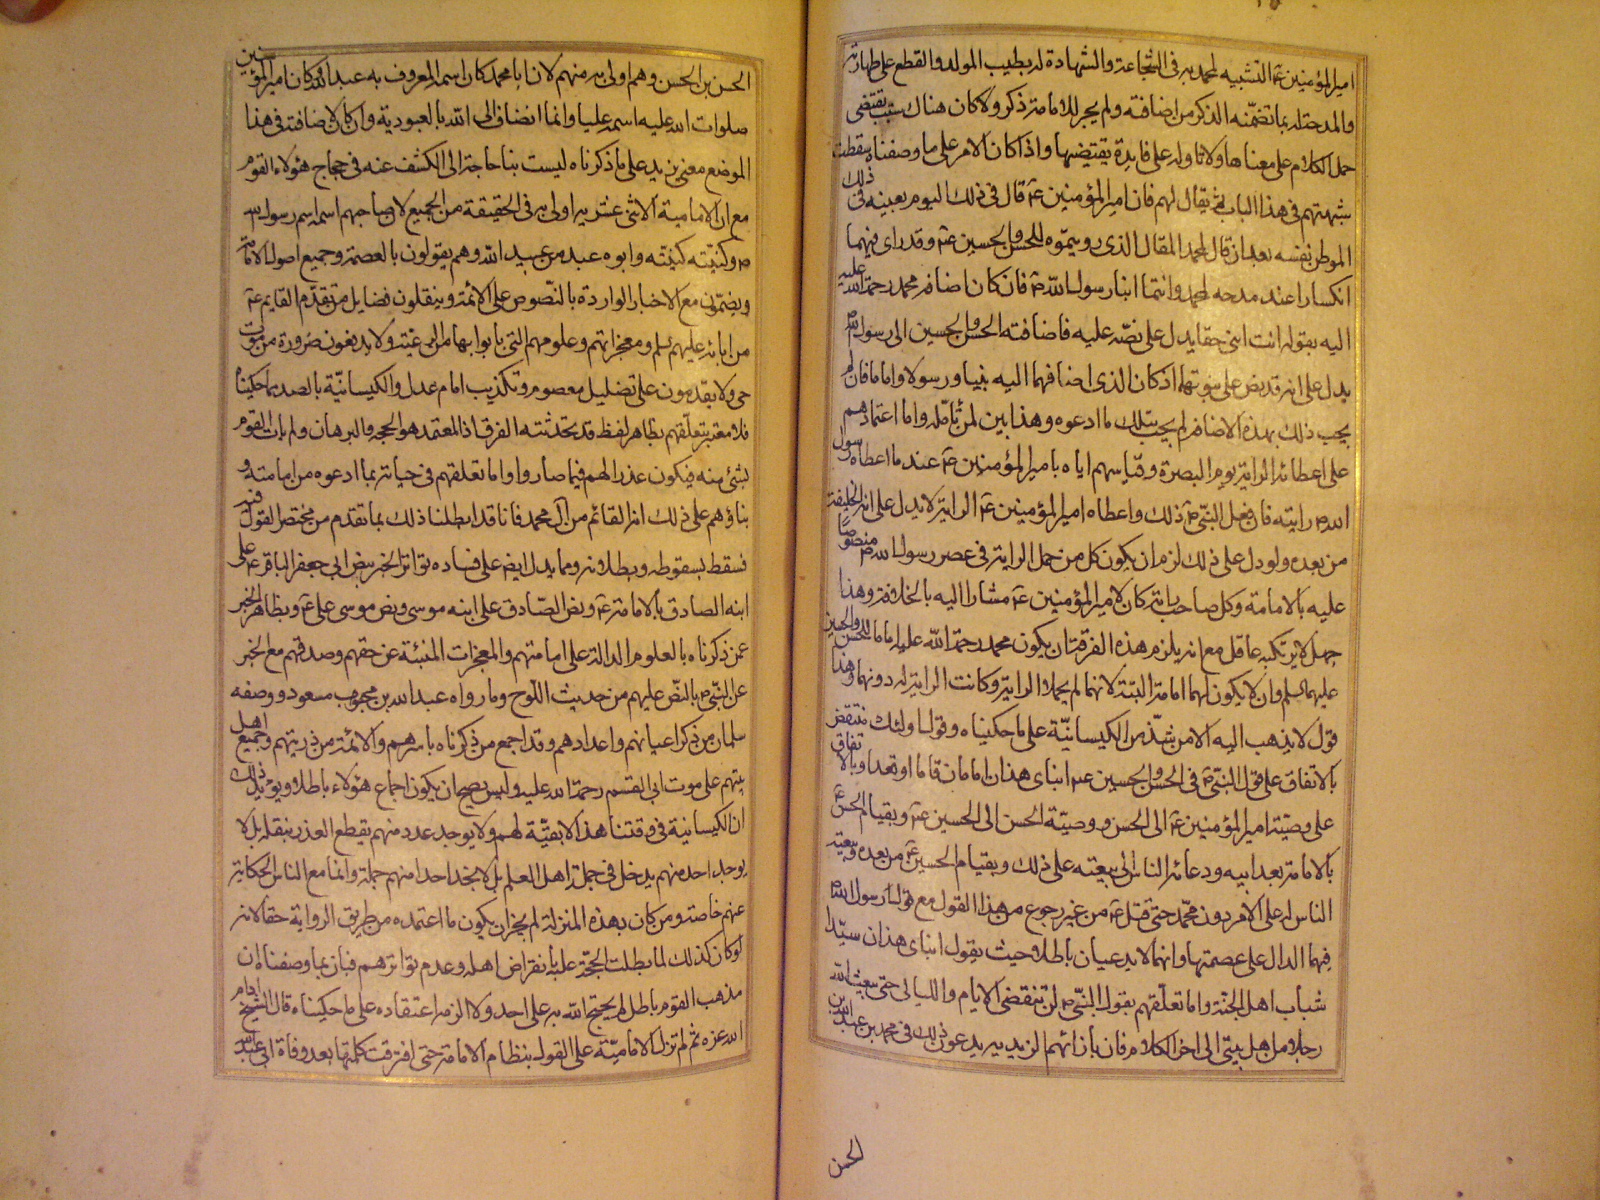 امير المؤمنين عۤ التشبيه لمحمد به في الشجاعة والشهادة له بطيب المولد والقطع على طهارته
والمدحة له بما تضمنه الذكر من اضافته ولم يجر للامامة ذكر ولا كان هناك سبب يقتضى
حمل الكلام على معناها ولا تاوله على فايدة يقتضيها واذا كان الامر على ما وصفناه سقطت
شبهتهم في هذا الباب ثم يقال لهم فان امير المؤمنين عۤ قال في ذلك اليوم بعينه في ذلك
الموطن نفسه بعد ان قال لمحمد المقال الذى رويتموه للحسن والحسين عۤ وقد راى فيهما
انكسارا عند مدحه لمحمد وانتما ابنا رسول الله صۤ فان كان اضافة محمد رحمة الله عليه
اليه بقوله انت ابنى حقا يدل على نصّه عليه فاضافته الحسن والحسين الى رسول الله صۤ
يدل على انه قد نص على نبوتهما اذ كان الذى اضافهما اليه نبيا ورسولا واماما فان لم
يجب ذلك بهذه الاضافة لم يجب بتلك ما ادعوه وهذا بين لمن تامّله واما اعتمادهم
على اعطائه الراية يوم البصرة وقياسهم اياه بامير المؤمنين عۤ عند ما اعطاه رسول
الله صۤ رايته فان فعل النبي صۤ ذلك واعطاه امير المؤمنين عۤ الراية لا يدل على انه الخليفة
من بعده ولو دل على ذلك لزم ان يكون كل من حمل الراية في عصر رسول الله صۤ منصوصًا
عليه بالامامة وكل صاحب راية كان لامير المؤمنين عۤ مشارا اليه بالخلافة وهذا
جهل لا يرتكبه عاقل مع انه يلزم هذه الفرقة ان يكون محمد رحمة الله عليه اماما للحسن والحسين
عليهما السلم وان لا يكون لهما امامة البتة لانهما لم يحملا الراية وكانت الراية له دونهما وهذا
قول لا يذهب اليه الا من شذ من الكيسانيّة على ما حكيناه وقول اولئك منتقض
بالاتفاق على قول النبي صۤ في الحسن والحسين عۤ ابناى هذان امامان قاما او قعدا وبالاتفاق
على وصية امير المؤمنين عۤ الى الحسن ووصيّة الحسن الى الحسين عۤ وبقيام الحسن عۤ
بالامامة بعد ابيه ودعائه الناس الى بيعته على ذلك وبقيام الحسين عۤ من بعده وبيعة
الناس له على الامر دون محمّد حتى قتل عۤ من غير رجوع من هذا القول مع قول رسول الله صۤ
فيهما الدال على عصمتهما وانهما لا يدعيان باطلا حيث يقول ابناى هذان سيّدا
شباب اهل الجنّة واما تعلّقهم بقول النبي صۤ لن تنقضى الايام والليالى حتى يبعث الله
رجلا من اهل بيتى الى اخر الكلام فان بازائهم الزيدية يدعون ذلك في محمد بن عبد الله بن
الحسن
الحسن بن الحسن وهم اولى به منهم لان ابا محمد كان اسمه المعروف به عبد الله وكان امير المؤمنين
صلوات الله عليه اسمه عليا وانما انضاف الى الله بالعبودية وان كان لاضافته في هذا
الموضع معنى يزيد على ما ذكرناه ليست بنا حاجة الى الكشف عنه في حجاج هؤلاء القوم
مع ان الامامية الاثنى عشرية اولى به في الحقيقة من الجميع لان صاحبهم اسمه اسم رسول الله
صۤ وكنيته كنيته وابوه عبد من عبيد الله وهم يقولون بالعصمة وجميع اصول الامامة
ويضمّون مع الاخبار الواردة بالنّصوص على الائمة وينقلون فضايل من تقدّم القايم عۤ
من ابائه عليهم السلم ومعجزاتهم وعلومهم التى بانوا بها من الرعية ولا يدفعون ضرورة من موت
حى ولا يقدمون على تضليل معصوم وتكذيب امام عدل والكيسانيّة بالضد مما حكيناه
فلا معتبر بتعلّقهم بظاهر لفظ قد تحدثته الفرق اذ المعتمد هو الحجة والبرهان ولم يات القوم
بشئ منه فيكون عذرا لهم فيما صاروا واما تعلقهم في حياته بما ادعوه من امامته و
بناؤهم على ذلك انه القائم من آل محمد فانا قد ابطلنا ذلك بما تقدم من مختصر القول فيه
فسقط بسقوطه وبطلانه ومما يدل ايضا على فساده تواتر الخبر بنص ابى جعفر الباقر عۤ على
ابنه الصادق بالامامة عۤ ونص الصّادق على ابنه موسى ونص موسى على علىّ عۤ وبظاهر الخبر
عمن ذكرناه بالعلوم الدالة على امامتهم والمعجزات المنبئة عن حقهم وصدقهم مع الخبر
عن النبي صۤ بالنصّ عليهم من حديث اللّوح وما رواه عبد الله بن مسعود ووصفه
سلمان من ذكر اعيانهم واعدادهم وقد اجمع من ذكرناه باسرهم والائمة من ذريتهم وجميع اهل
بيتهم على موت ابى القسم رحمة الله عليه وليس يصح ان يكون اجماع هؤلاء باطلا ويؤيد ذلك
ان الكيسانية في وقتنا هذا لا بقيّة لهم ولا يوجد عدد منهم يقطع العذر بنقله بل لا
يوجد احد منهم يدخل في جملة اهل العلم بل لا نجد احدا منهم جملة وانما مع الناس الحكاية
عنهم خاصة ومن كان بهذه المنزلة لم يجز ان يكون ما اعتمده من طريق الرواية حقا لانه
لو كان كذلك لما بطلت الحجّة عليه بانقراض اهله وعدم تواترهم فبان بما وصفناه ان
مذهب القوم باطل لم يحتج الله به على احد ولا الزمه اعتقاده على ما حكيناه قال الشيخ ادام
الله عزه ثم لم تزل الاماميّة على القول بنظام الامامة حتى افترقت كلمتها بعد وفاة ابى عبد الله